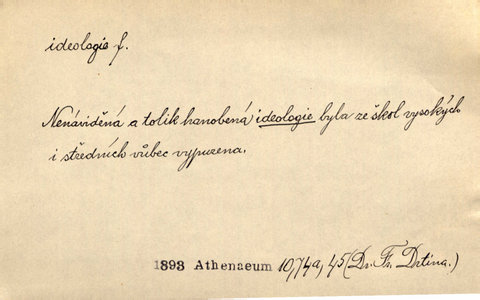 ideologie f.
Nenáviděná a tolik hanobená ideologie byla ze škol vysokých
i středních vůbec vypuzena.
1893 Athenaeum 10,74a,45 (Dr. Fr. Drtina.)